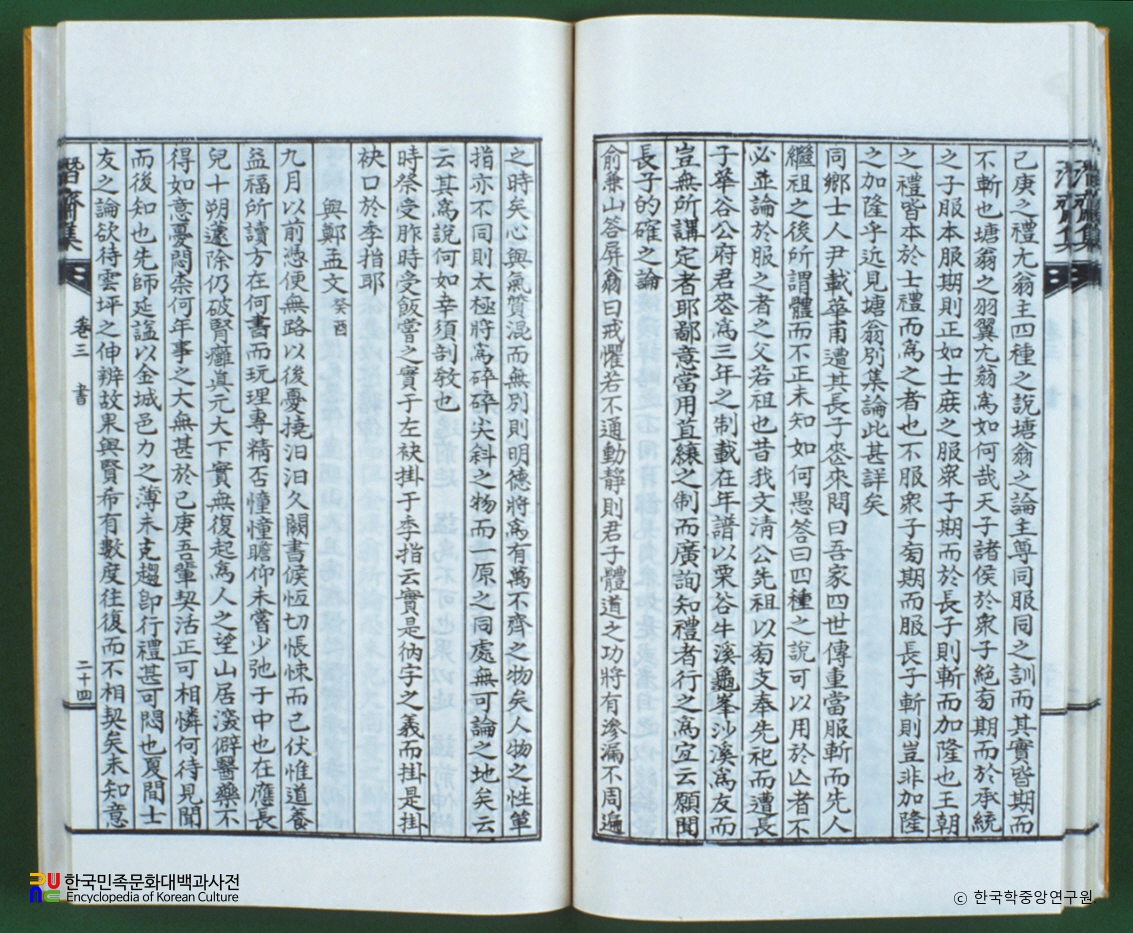 己庚之禮尤翁主四種之說塘翁之論主尊同服同之訓而其實皆期而
不斬也塘翁之羽翼尤翁爲如何哉天子諸侯於衆子絶匈期而於承統
之子服本服期則正如士庶之服衆子期而於長子則斬而加隆也王朝
之禮皆本於士禮而爲之者也不服衆子匈期而服長子斬則豈非加隆
之加隆乎近見塘翁別集論此甚詳矣
同鄉士人尹載華甫遭其長子喪來問曰吾家四世傳重當服斬而先人
繼祖之後所謂體而不正未知如何愚答曰四種之說可以用於亾者不
必並論於服之者之父若祖也昔我文淸公先祖以匈支奉先祀而遭長
子華谷公府君喪爲三年之制載在年譜以栗谷牛溪龜峯沙溪爲友而
豈無所講定者耶鄙意當用苴縗之制而廣詢知禮者行之爲宜云願聞
長子的確之論
俞兼山答屏翁曰戒懼若不通動靜則君子體道之功將有滲漏不周遍
之時矣心與氣質混而無別則明德將爲有萬不齊之物矣人物之性單
指亦不同則太極將爲碎碎尖斜之物而一原之同處無可論之地矣云
云其爲說何如幸須剖敎也
時祭受胙時受飯嘗之實于左袂掛于季指云實是納字之義而掛是掛
袂口於季指耶
與鄭孟文 癸酉
九月以前憑便無路以後憂撓汨汨久闕書候恆切悵悚而已伏惟道養
益福所讀方在何書而玩理專精否憧憧瞻仰未嘗少弛于中也在應長
兒十朔蘧除仍破腎癰眞元大下實無復起爲人之望山居深僻醫藥不
得如意憂悶柰何年事之大無甚於己庚吾輩契活正可相憐何待見聞
而後知也先師延諡以金城邑力之薄未克趨卽行禮甚可悶也夏間士
友之論欲待雲坪之伸辨故果與賢希有數度往復而不相契矣未知意
齋集
卷三
書
二十四
한국민족문화대백과사전
Encyclopedia of Korean Culture
© 한국학중앙연구원.